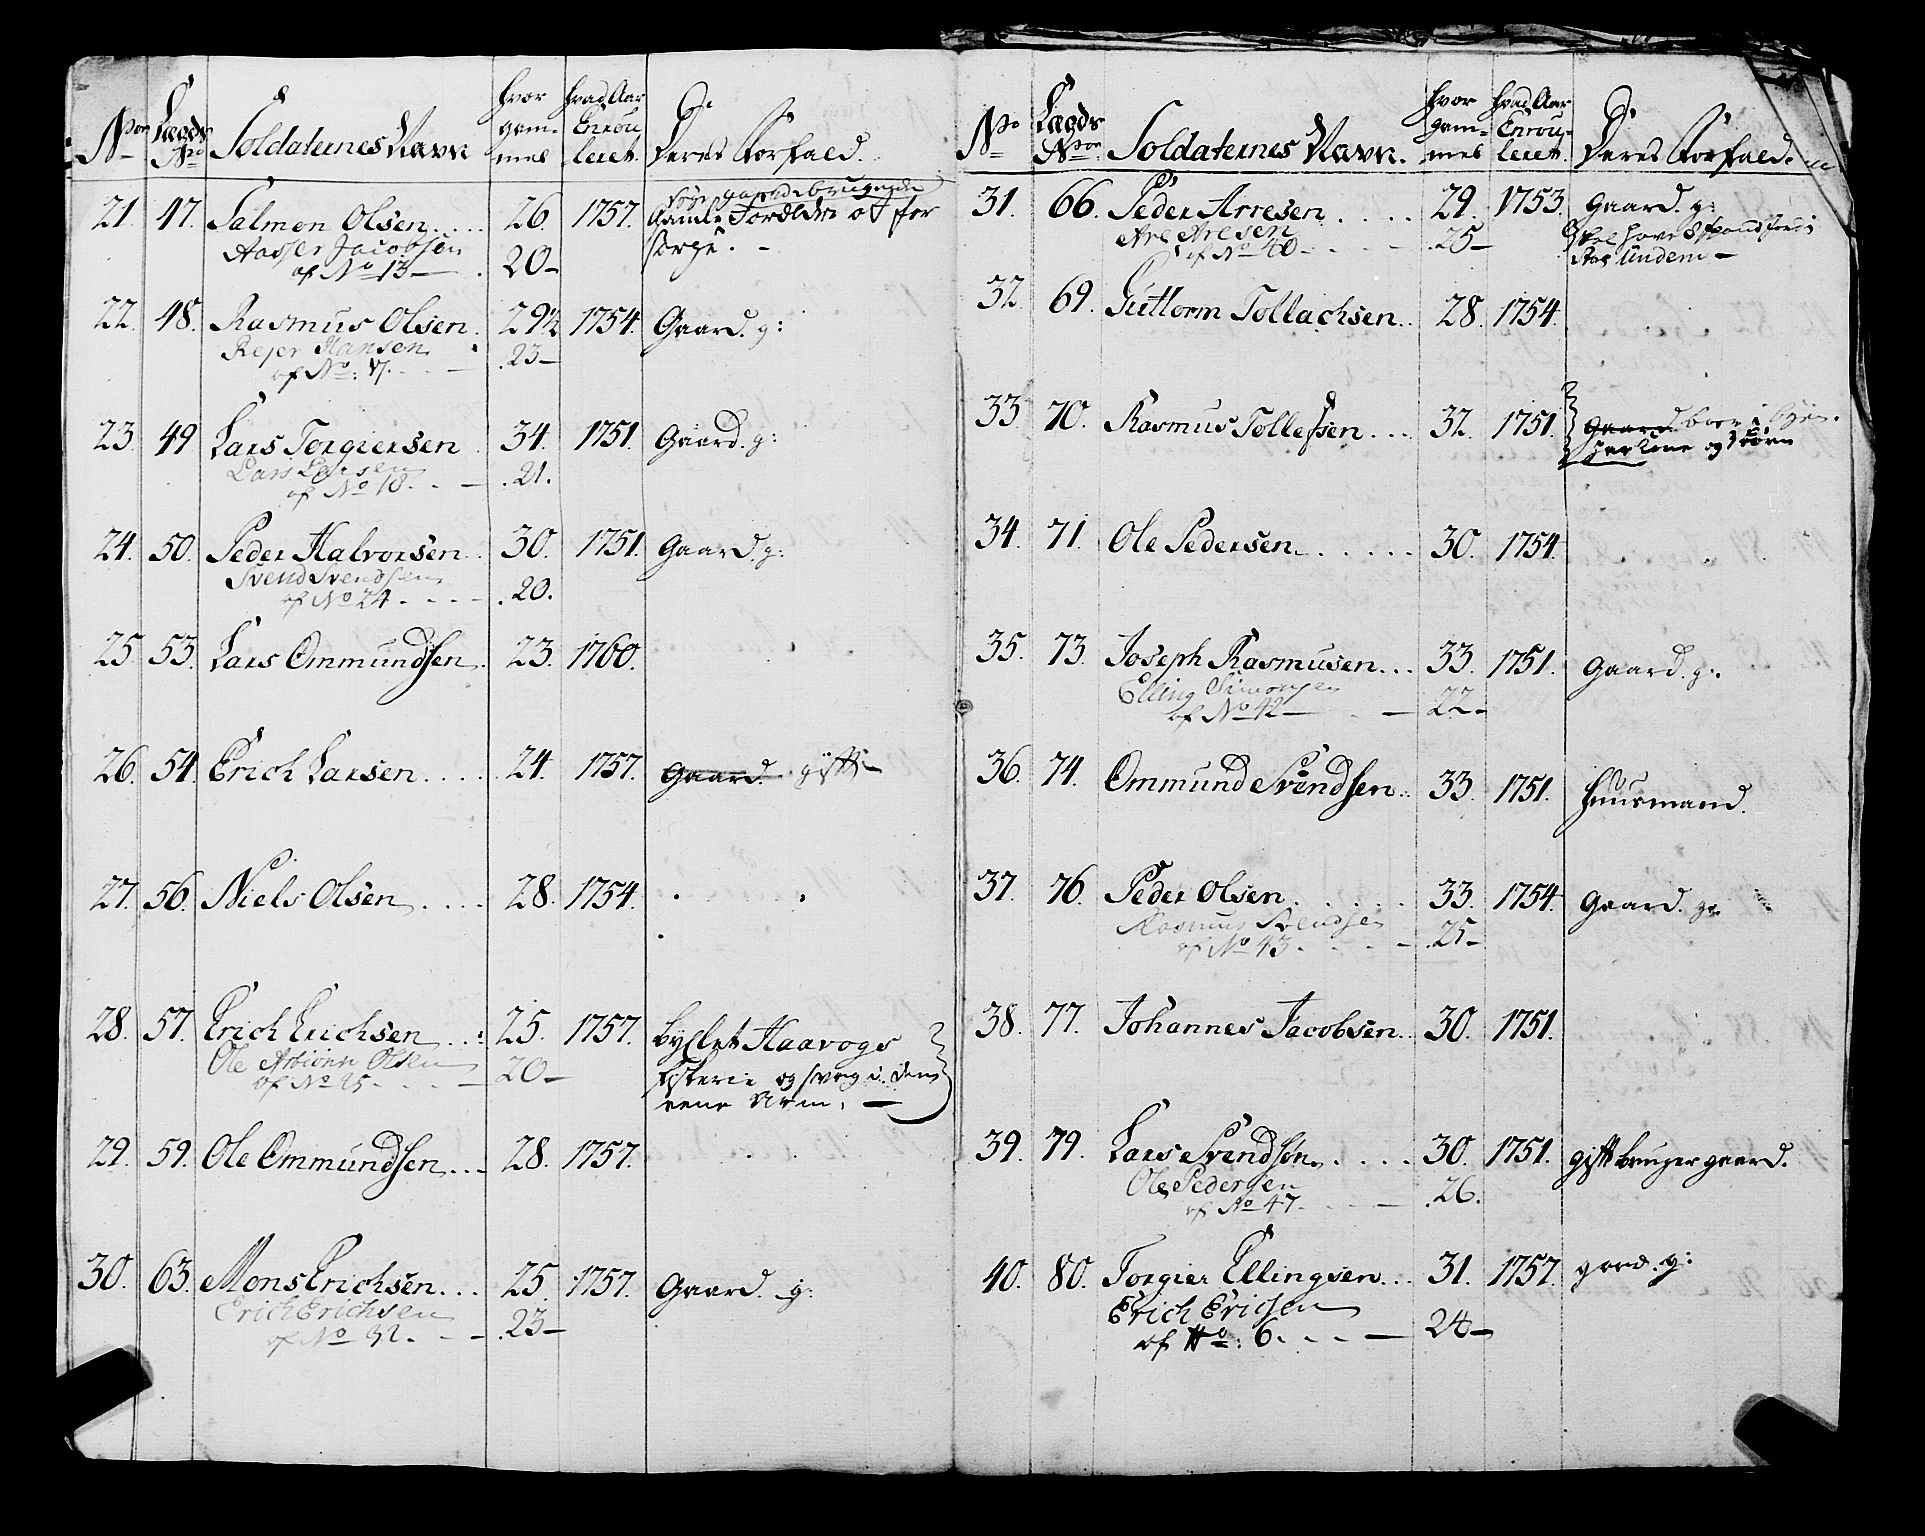 No Lægds No Soldaternes Navn hvor gammel hvad Aar Enroulleret Deres Forfald.
21. 47. Salmon Olsen..... 26. 1757. gaard brugende
gamle Forældre at for
Aasser Jacobsen
sørge. -
af No 13 - 20-
22. 48. Rasmus Olsen. 29½ 1754. Gaard. g:
Rejer Hansen
af No: 17. - - 23-
23 49 Lars Torgiersen 34. 1751. Gaard. g:
Lars Larsen
af No 18. - - 21.
24. 50. Peder Halvorsen 30. 1751. Gaard g:
Svend Svendsen
af No 24 - - - - 20.
25. 53. Lars Ommundsen. 23. 1760.
26. 54. Erich Larsen..... 24. 1757. Gaard. gift-
27. 56. Niels Olsen.... 28. 1754.
28. 57. Erich Erichsen... 25. 1757. Haavogs
Ole Olsen 20-
af No 25 - - - - og svag i den
eene Arm. -
29. 59. Ole Ommundsen... 28. 1757.
30. 63. Mons Erichsen... 25. 1757. Gaard. g:
Erich Erichsen
af No 32. - - - 23-
No Lægds No Soldaternes Navn. hvor gammel hvad Aar Enroulleret. Deres Forfald.
31. 66. Peder Arresen.... 29. 1753. Gaard. g:
Are Aresen 25-
skal have
af No 40 - - - -
32. 69. Guttorm Tollachsen.. 28. 1754.
33 70. Rasmus Tollefsen... 32. 1751. Gaard boer i Byen.
har Kone og Børn
34. 71. Ole Pedersen...... 30. 1754.
35. 73. Joseph Rasmusen... 33. 1751. Gaard. g:
Elling Simonsen
af No 42 - - - 22-
36. 74. Ommund Svendsen.. 33. 1751. Huusmand.
37. 76. Peder Olsen...... 33. 1754. Gaard. g:
Rasmus Svendsen
af No 43. - - - - 25-
38. 77. Johannes Jacobsen.. 30. 1751.
39. 79. Lars Svendsøn.... 30. 1751. gift bruger gaard.
Ole Pedersen
af No 47. - - - - 26.
40. 80. Torgier Ellingsen... 31. 1757. gard. g:
Erich Erichsen
af No: 6. - - - 24-